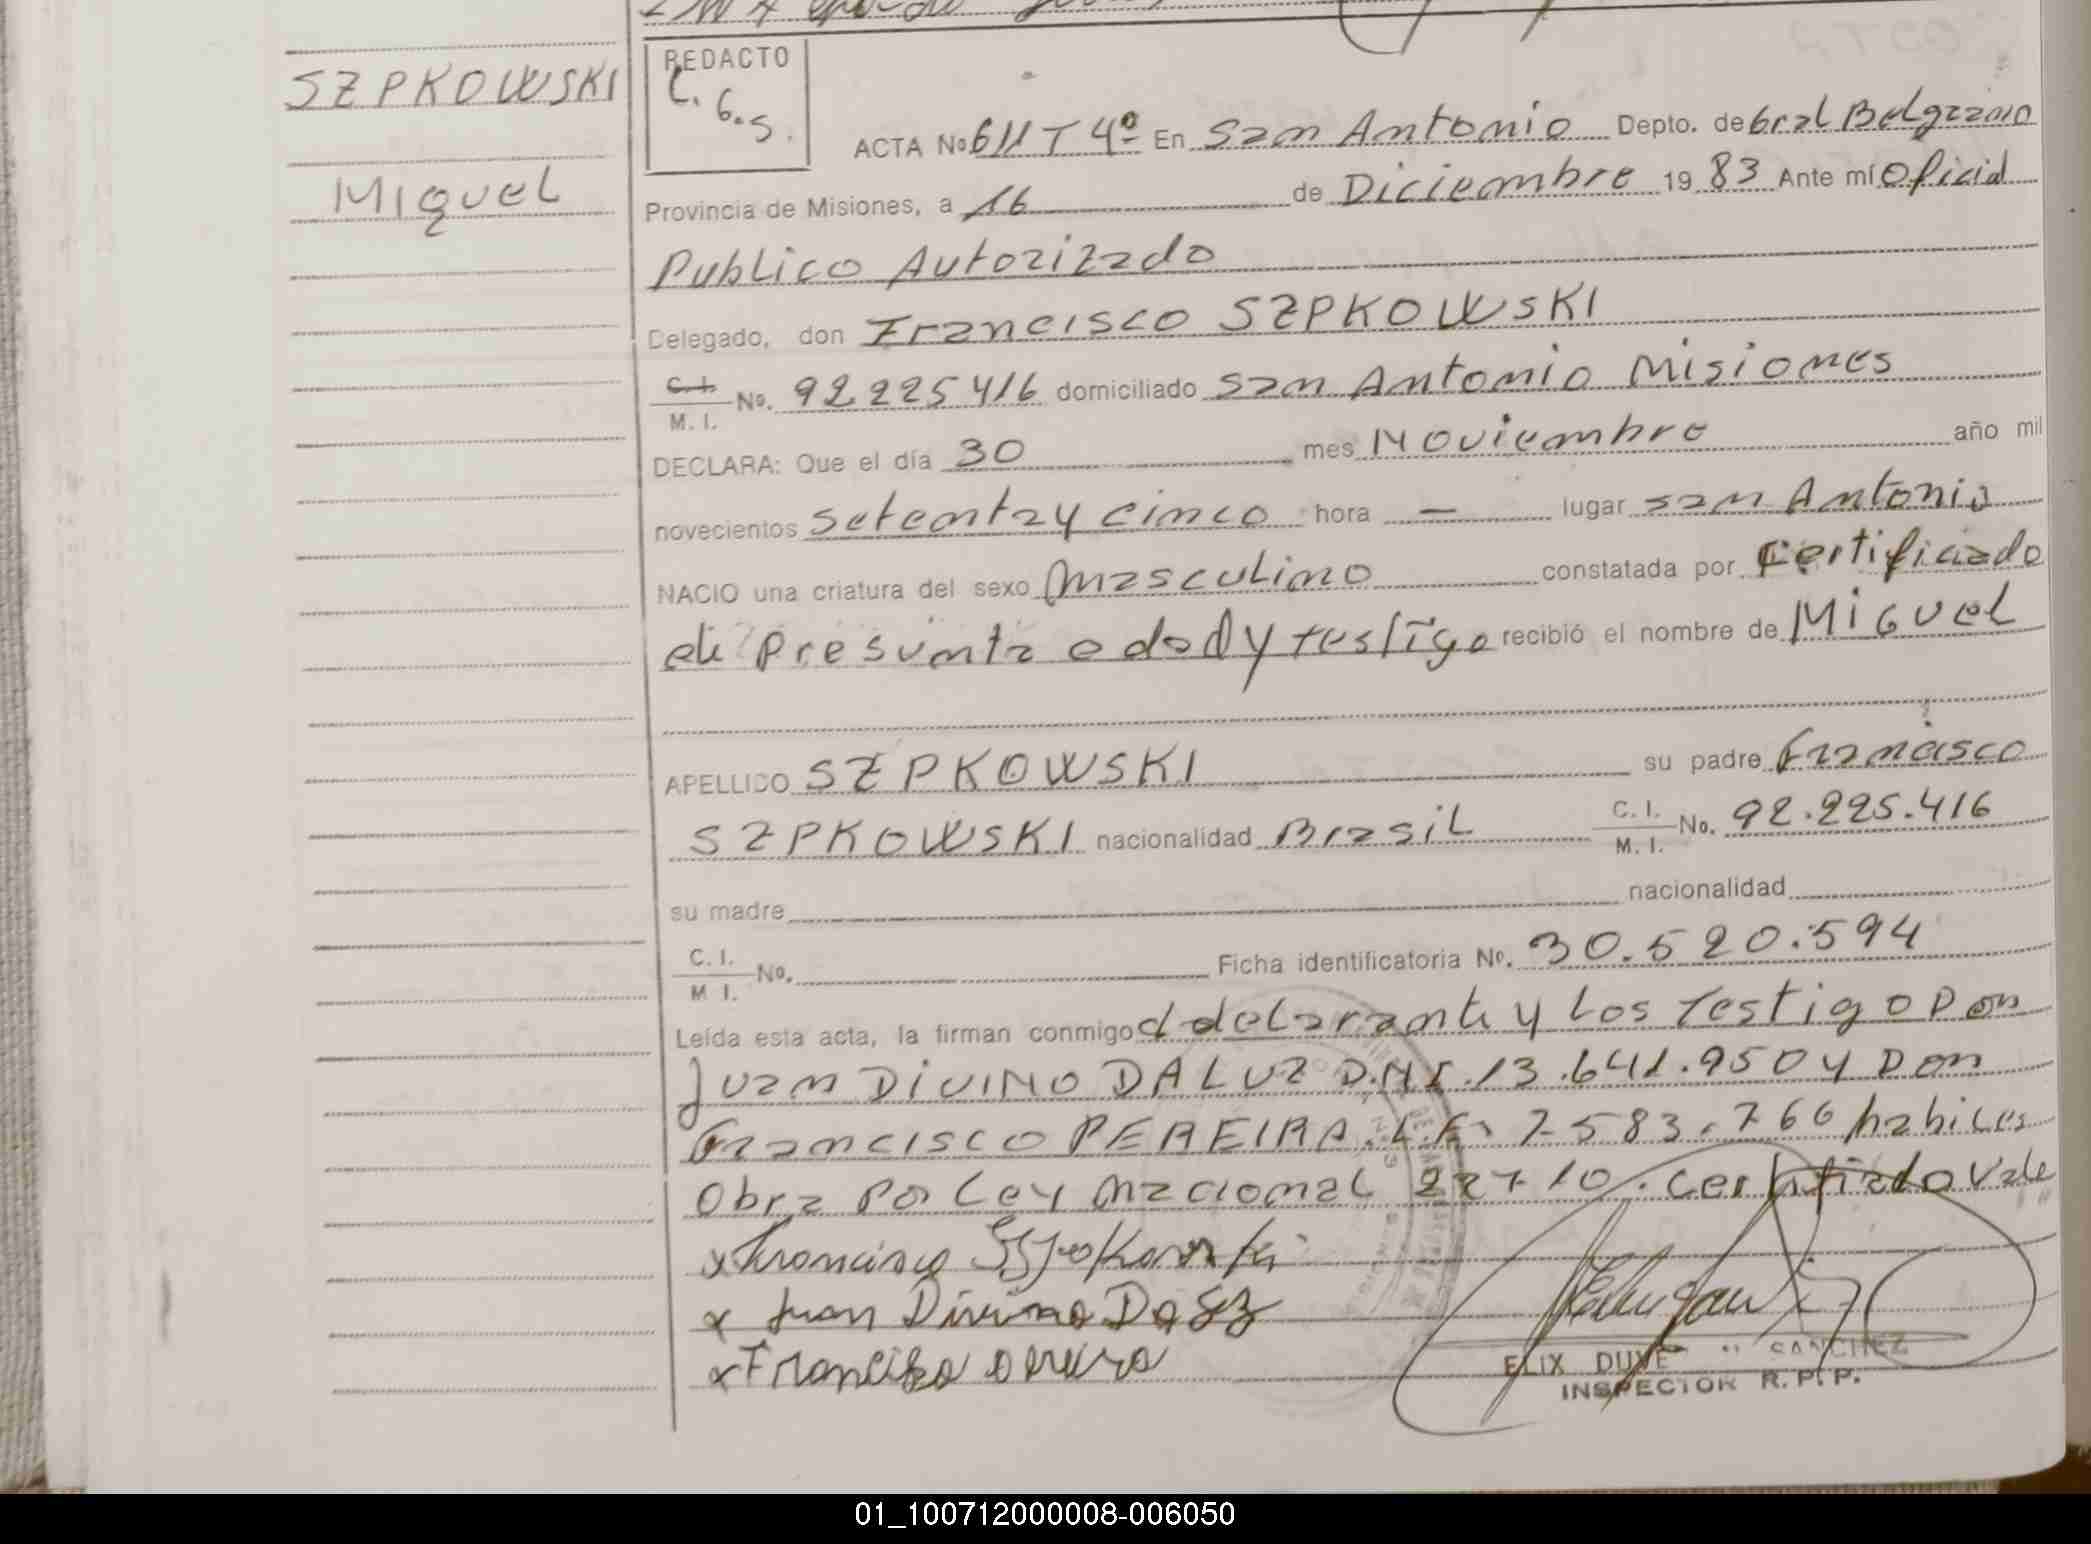 SZPKOWSKI
Miguel
REDACTO
C. G. S.
ACTA No 611 T 4º En San Antonio Depto. de Gral Belgrano
Provincia de Misiones, a 16 de Diciembre 19 83 Ante mí Oficial
Publico Autorizado
Delegado, don Francisco SZPKOWSKI
C. I.
M. I. No. 92225416 domiciliado San Antonio Misiones
DECLARA: Que el día 30 mes Noviembre año mil
novecientos setenta y cinco hora — lugar San Antonio
NACIO una criatura del sexo Masculino constatada por Certificado
de presunta edad y testigo recibió el nombre de Miguel
APELLIDO SZPKOWSKI su padre Francisco
SZPKOWSKI nacionalidad Brasil C. I.
M. I. No. 92.225.416
su madre nacionalidad
C. I.
M. I. No. Ficha identificatoria No. 30.520.594
Leída esta acta, la firman conmigo el declarante y los Testigo Don
Juan DIVINO DALUZ D.N.I. 13.641.950 y Don
Francisco PEREIRA. L.E. 7583.766 habiles
Obra por Ley Nacional 22710. Certificado Vale
x Francisco Szpkowski
x Juan Divino Da Luz
x Francisco Pereira
ELIX DUVE SANCHEZ
INSPECTOR R. P. P.
01_100712000008-006050